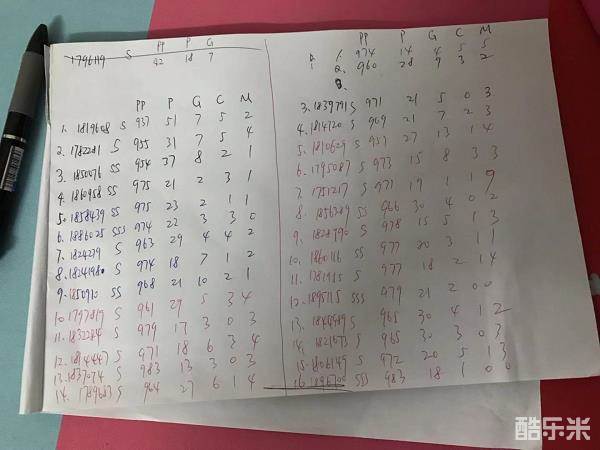 PP P G
1796119 S 92 18 7
PP P G C M
1. 1819608 S 937 51 7 5 2
2. 1782281 S 955 31 7 5 4
3. 1850076 SS 954 37 8 2 1
4. 1860958 SS 975 21 2 3 1
5. 1858439 SS 975 23 2 1 1
6. 1886025 SSS 974 22 3 3 0
7. 1824279 S 963 29 4 4 2
8. 1824198 S 974 18 7 1 2
9. 1850910 SS 968 21 10 2 1
10. 1797817 S 961 29 5 3 4
11. 1832284 S 979 17 3 0 3
12. 1814447 S 971 18 6 3 4
13. 1837074 S 983 13 3 0 3
14. 1789687 S 964 27 6 1 4
PP P G C M
1. 974 14 4 5 5
2. 960 28 9 3 2
3. 1839791 S 971 21 5 0 3
4. 1814720 S 969 21 7 2 3
5. 1810629 S 951 27 13 1 4
6. 1795087 S 973 15 8 3 3
7. 1751217 S 977 19 1 1 9
8. 1856389 SS 966 30 4 0 2
9. 1828790 S 978 15 5 1 3
10. 1860116 SS 977 20 3 1 1
11. 1781915 S 977 18 2 1 4
12. 1895115 SSS 979 21 2 0 0
13. SS 965 30 4 1 2
14. S 965 30 3 0 3
15. 1806149 S 972 20 5 1 3
16. 1896700 SSS 983 18 1 0 0
酷乐米